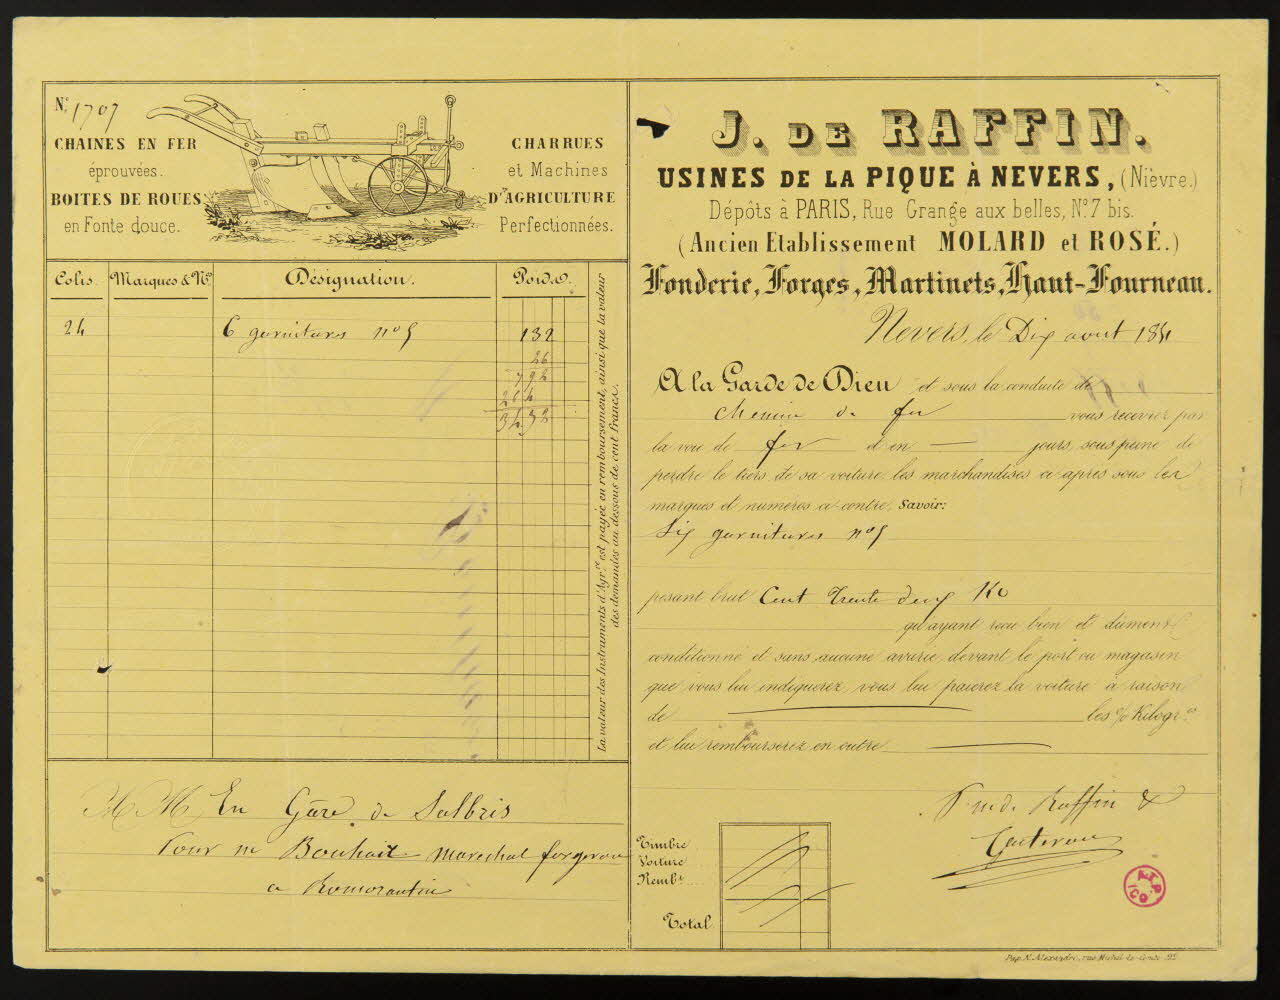 N° 1707
CHAINES EN FER
éprouvées.
BOITES DE ROUES
en Fonte douce.
CHARRUES
et Machines
D'AGRICULTURE
Perfectionnées.
Colis. Marques & Nos Désignation. Poids.
24 6 garnitures n°5 132
26
792
264
3432
La valeur des Instruments d'Agrre est payée en remboursement, ainsi que la valeur
des demandes au dessous de cent francs.
M M En Gare de Salbris
Pour m Bouhait marechal forgeron
a Romorantin
J. DE RAFFIN.
USINES DE LA PIQUE À NEVERS, (Nièvre.)
Dépôts à PARIS, Rue Grange aux belles, N° 7 bis.
(Ancien Etablissement MOLARD et ROSÉ.)
Fonderie, Forges, Martinets, Haut-Fourneau.
Nevers, le Dix aout 18
A la Garde de Dieu et sous la conduite de
chemin de fer vous recevrez par
la voie de fer et en — jours, sous peine de
perdre le tiers de sa voiture les marchandises ci après sous les
marques et numeros ci contre, Savoir:
Six garnitures n°5
pesant brut Cent Trente deux Ko
qu'ayant recu bien et dûment
conditionné et sans aucune avarie, devant le port ou magasin
que vous lui indiquerez, vous lui paierez la voiture à raison
de — les % Kilogres
et lui rembourserez en outre —
Raffin &
Timbre
Voiture
Rembt
Total
A.T.P.
ICO
Pap. N. Alexandre, rue Michel-le-Comte